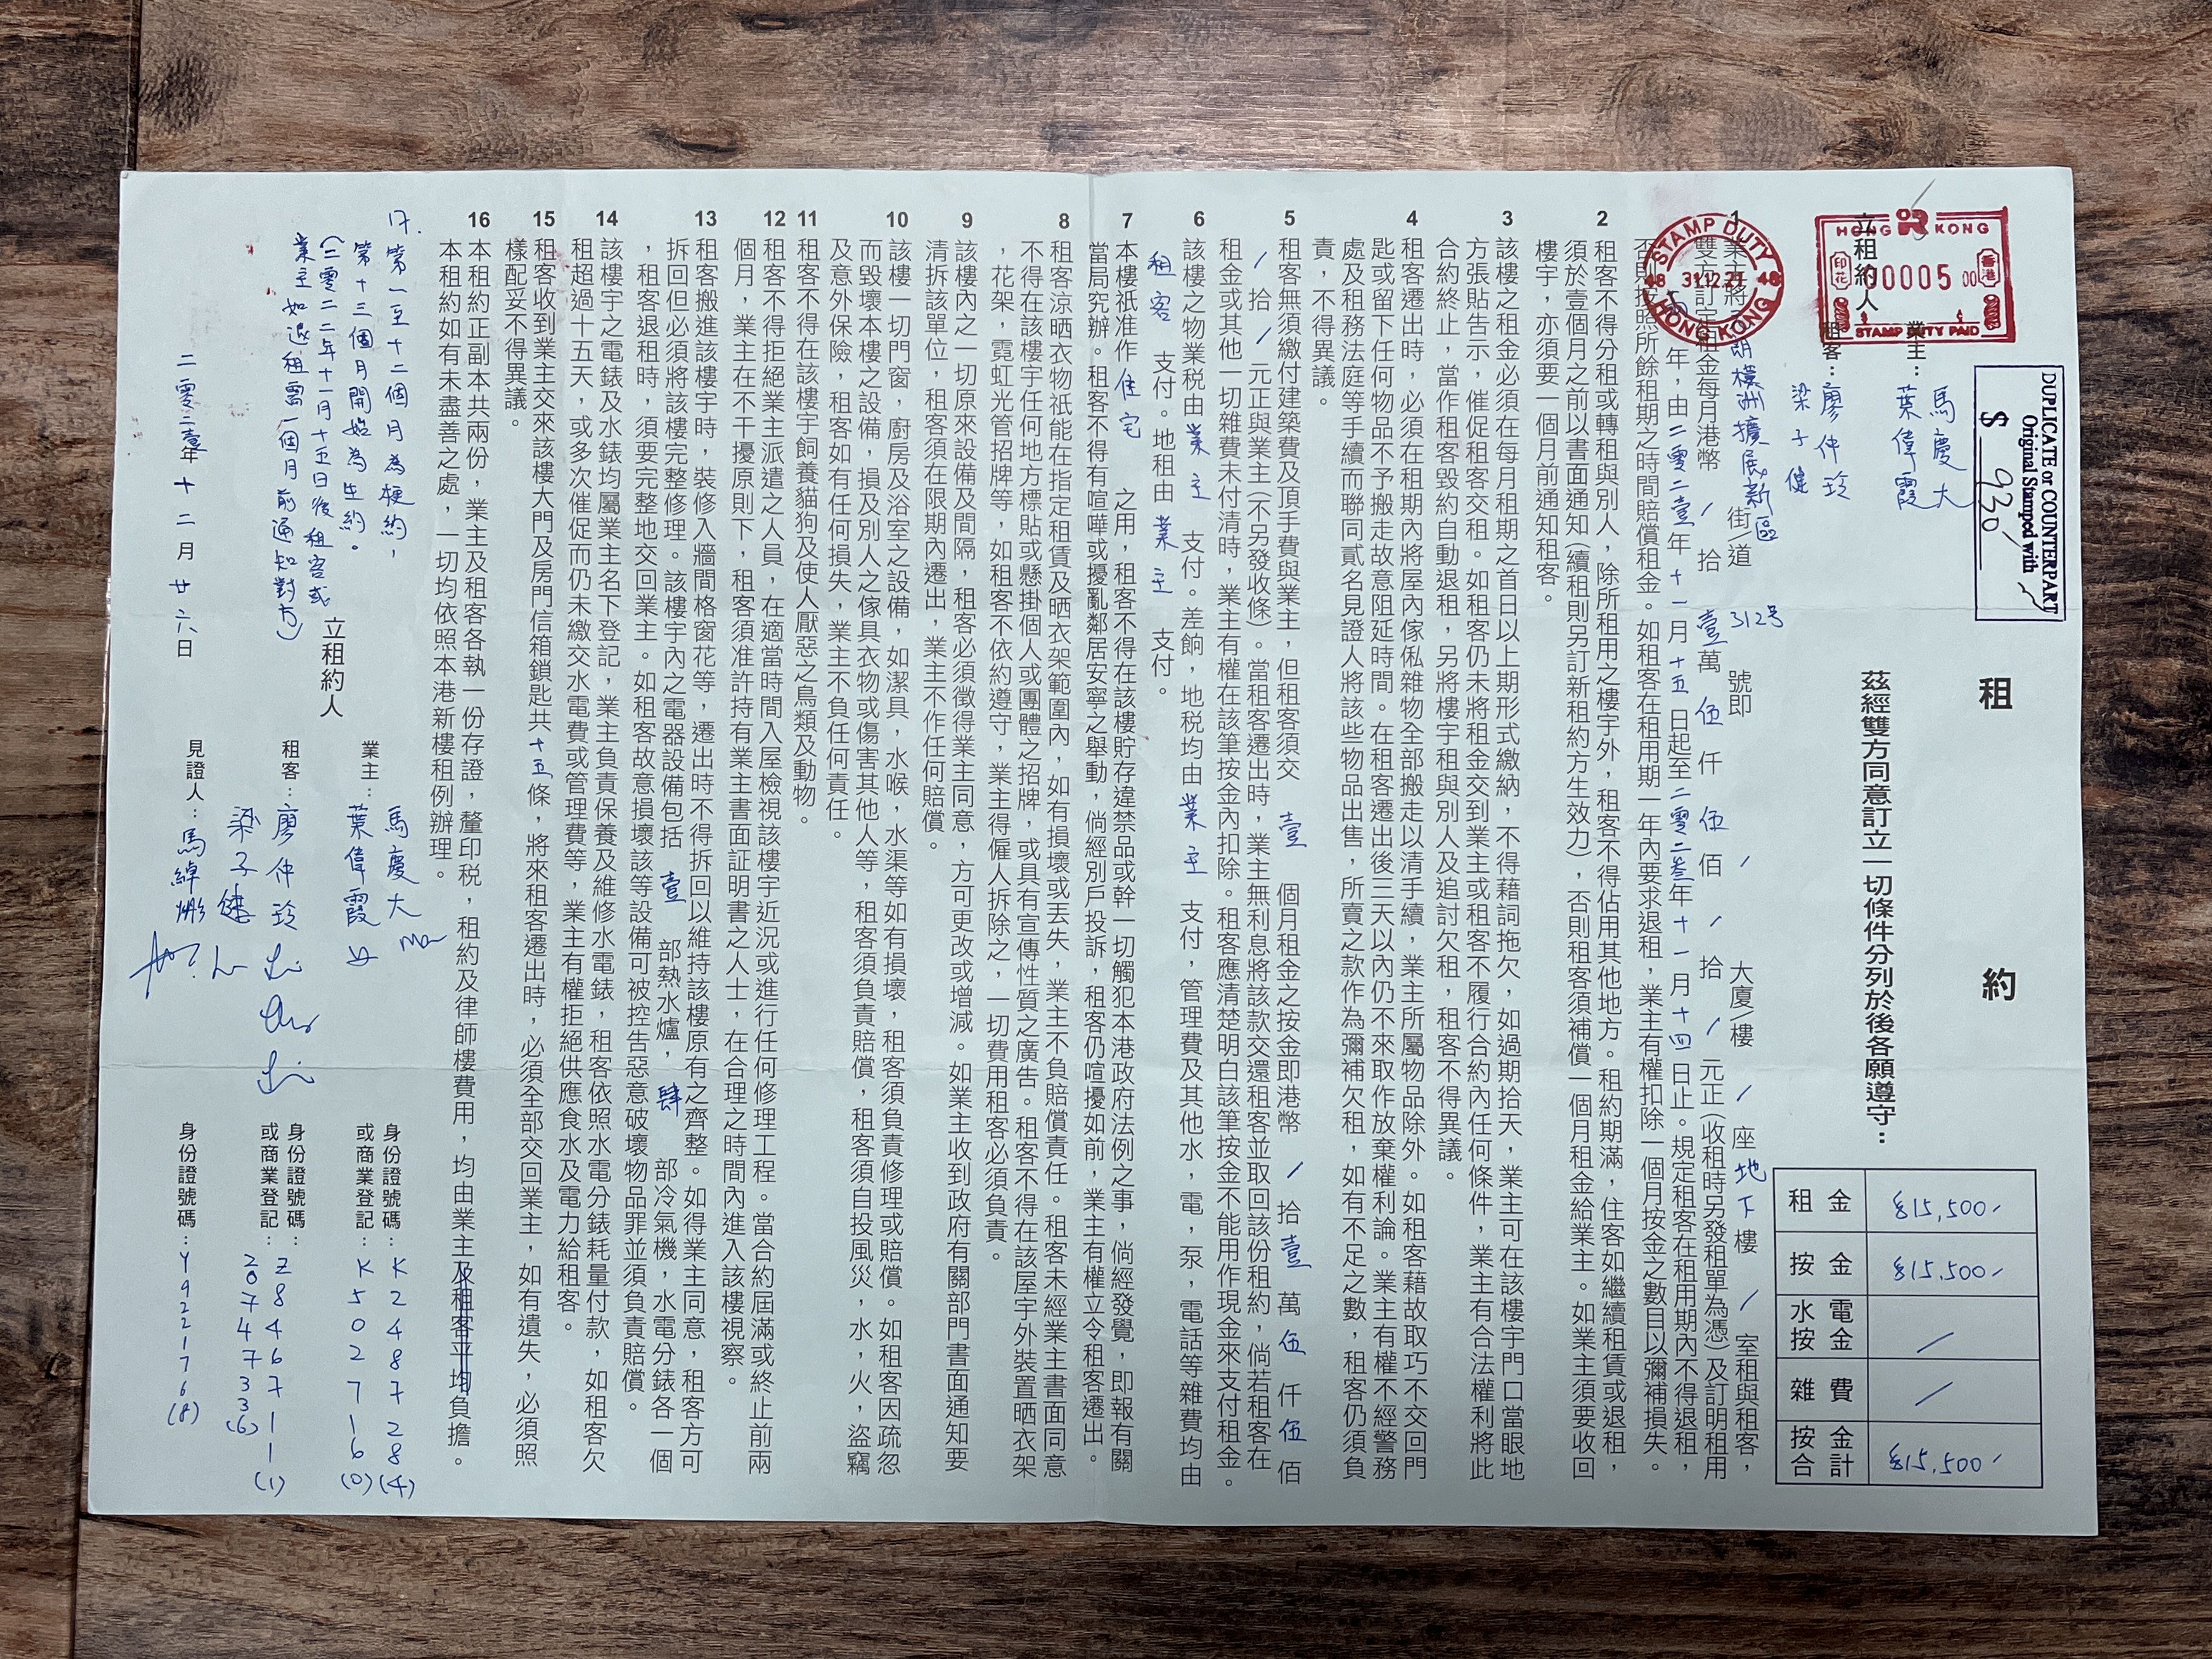 租約
DUPLICATE or COUNTERPART
Original Stamped with
$ 930
茲經雙方同意訂立一切條件分列於後各願遵守：
立租約人
業主：馬慶大
葉偉霞
租客：廖仲玲
梁子健
HONG KONG
印花
香港
00005 00
STAMP DUTY PAID
STAMP DUTY
48 31.12.21 48
HONG KONG
租金 $15,500/
按金 $15,500/
水電按金 /
雜費 /
按金合計 $15,500/
1 業主將 樸洲擴展新區 街/道 312号 號即 / 大廈/樓 / 座 地下 樓 / 室租與租客，
雙方訂定租金每月港幣 / 拾 壹 萬 伍 仟 伍 佰 / 拾 / 元正（收租時另發租單為憑）及訂明租用
年，由二零二壹年十一月十五日起至二零二叁年十一月十四日止。規定租客在租用期內不得退租，
否則按照所餘租期之時間賠償租金。如租客在租用期一年內要求退租，業主有權扣除一個月按金之數目以彌補損失。
2 租客不得分租或轉租與別人，除所租用之樓宇外，租客不得佔用其他地方。租約期滿，住客如繼續租賃或退租，
須於壹個月之前以書面通知（續租則另訂新租約方生效力），否則租客須補償一個月租金給業主。如業主須要收回
樓宇，亦須要一個月前通知租客。
3 該樓之租金必須在每月租期之首日以上期形式繳納，不得藉詞拖欠，如過期拾天，業主可在該樓宇門口當眼地
方張貼告示，催促租客交租。如租客仍未將租金交到業主或租客不履行合約內任何條件，業主有合法權利將此
合約終止，當作租客毀約自動退租，另將樓宇租與別人及追討欠租，租客不得異議。
4 租客遷出時，必須在租期內將屋內傢俬雜物全部搬走以清手續，業主所屬物品除外。如租客藉故取巧不交回門
匙或留下任何物品不予搬走故意阻延時間。在租客遷出後三天以內仍不來取作放棄權利論。業主有權不經警務
處及租務法庭等手續而聯同貳名見證人將該些物品出售，所賣之款作為彌補欠租，如有不足之數，租客仍須負
責，不得異議。
5 租客無須繳付建築費及頂手費與業主，但租客須交 壹 個月租金之按金即港幣 / 拾 壹 萬 伍 仟 伍 佰
/ 拾 / 元正與業主（不另發收條）。當租客遷出時，業主無利息將該款交還租客並取回該份租約，倘若租客在
租金或其他一切雜費未付清時，業主有權在該筆按金內扣除。租客應清楚明白該筆按金不能用作現金來支付租金。
6 該樓之物業稅由 業主 支付。差餉，地稅均由 業主 支付，管理費及其他水，電，泵，電話等雜費均由
租客 支付。地租由 業主 支付。
7 本樓祇准作 住宅 之用，租客不得在該樓貯存違禁品或幹一切觸犯本港政府法例之事，倘經發覺，即報有關
當局究辦。租客不得有喧嘩或擾亂鄰居安寧之舉動，倘經別戶投訴，租客仍喧擾如前，業主有權立令租客遷出。
8 租客涼晒衣物祇能在指定租賃及晒衣架範圍內，如有損壞或丟失，業主不負賠償責任。租客未經業主書面同意
不得在該樓宇任何地方標貼或懸掛個人或團體之招牌，或具有宣傳性質之廣告。租客不得在該屋宇外裝置晒衣架
，花架，霓虹光管招牌等，如租客不依約遵守，業主得僱人拆除之，一切費用租客必須負責。
9 該樓內之一切原來設備及間隔，租客必須徵得業主同意，方可更改或增減。如業主收到政府有關部門書面通知要
清拆該單位，租客須在限期內遷出，業主不作任何賠償。
10 該樓一切門窗，廚房及浴室之設備，如潔具，水喉，水渠等如有損壞，租客須負責修理或賠償。如租客因疏忽
而毀壞本樓之設備，損及別人之傢具衣物或傷害其他人等，租客須負責賠償，租客須自投風災，水，火，盜竊
及意外保險，租客如有任何損失，業主不負任何責任。
11 租客不得在該樓宇飼養貓狗及使人厭惡之鳥類及動物。
12 租客不得拒絕業主派遣之人員，在適當時間入屋檢視該樓宇近況或進行任何修理工程。當合約屆滿或終止前兩
個月，業主在不干擾原則下，租客須准許持有業主書面証明書之人士，在合理之時間內進入該樓視察。
13 租客搬進該樓宇時，裝修入牆間格窗花等，遷出時不得拆回以維持該樓原有之齊整。如得業主同意，租客方可
拆回但必須將該樓完整修理。該樓宇內之電器設備包括 壹 部熱水爐， 肆 部冷氣機，水電分錶各一個
，租客退租時，須要完整地交回業主。如租客故意損壞該等設備可被控告惡意破壞物品罪並須負責賠償。
14 該樓宇之電錶及水錶均屬業主名下登記，業主負責保養及維修水電錶，租客依照水電分錶耗量付款，如租客欠
租超過十五天，或多次催促而仍未繳交水電費或管理費等，業主有權拒絕供應食水及電力給租客。
15 租客收到業主交來該樓大門及房門信箱鎖匙共 十五 條，將來租客遷出時，必須全部交回業主，如有遺失，必須照
樣配妥不得異議。
16 本租約正副本共兩份，業主及租客各執一份存證，釐印稅，租約及律師樓費用，均由業主及租客平均負擔。
本租約如有未盡善之處，一切均依照本港新樓租例辦理。
17. 第一至十二個月為梗約，
第十三個月開始為生約。
（二零二二年十一月十五日後租客或
業主如退租需一個月前通知對方）
立租約人
業主：馬慶大
葉偉霞
身份證號碼：K248728(4)
或商業登記：K502716(0)
租客：廖仲玲
梁子健
身份證號碼：Z846711(1)
或商業登記：2074733(6)
見證人：馬綽彬
身份證號碼：Y922176(8)
二零二壹年十二月廿六日